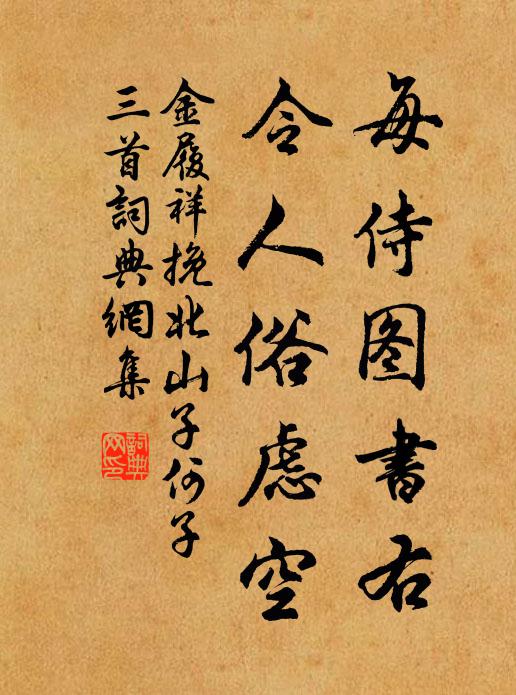 每侍图書右
令人俗慮空
金履祥挽北山子何子
三首詞典網集
詞典
网印